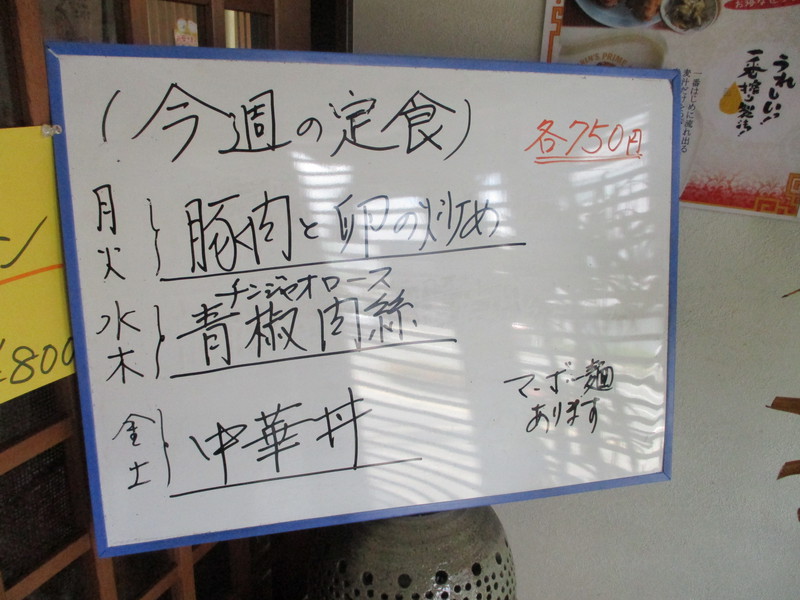 (今週の定食)
各750円
月
火
豚肉と卵の炒め
チンジャオロース
水
木
青椒肉絲
金
土
中華丼
マーボー麺
あります
ン
¥800
うれしい!!
一番搾り製法!
一番はじめに流れ出る